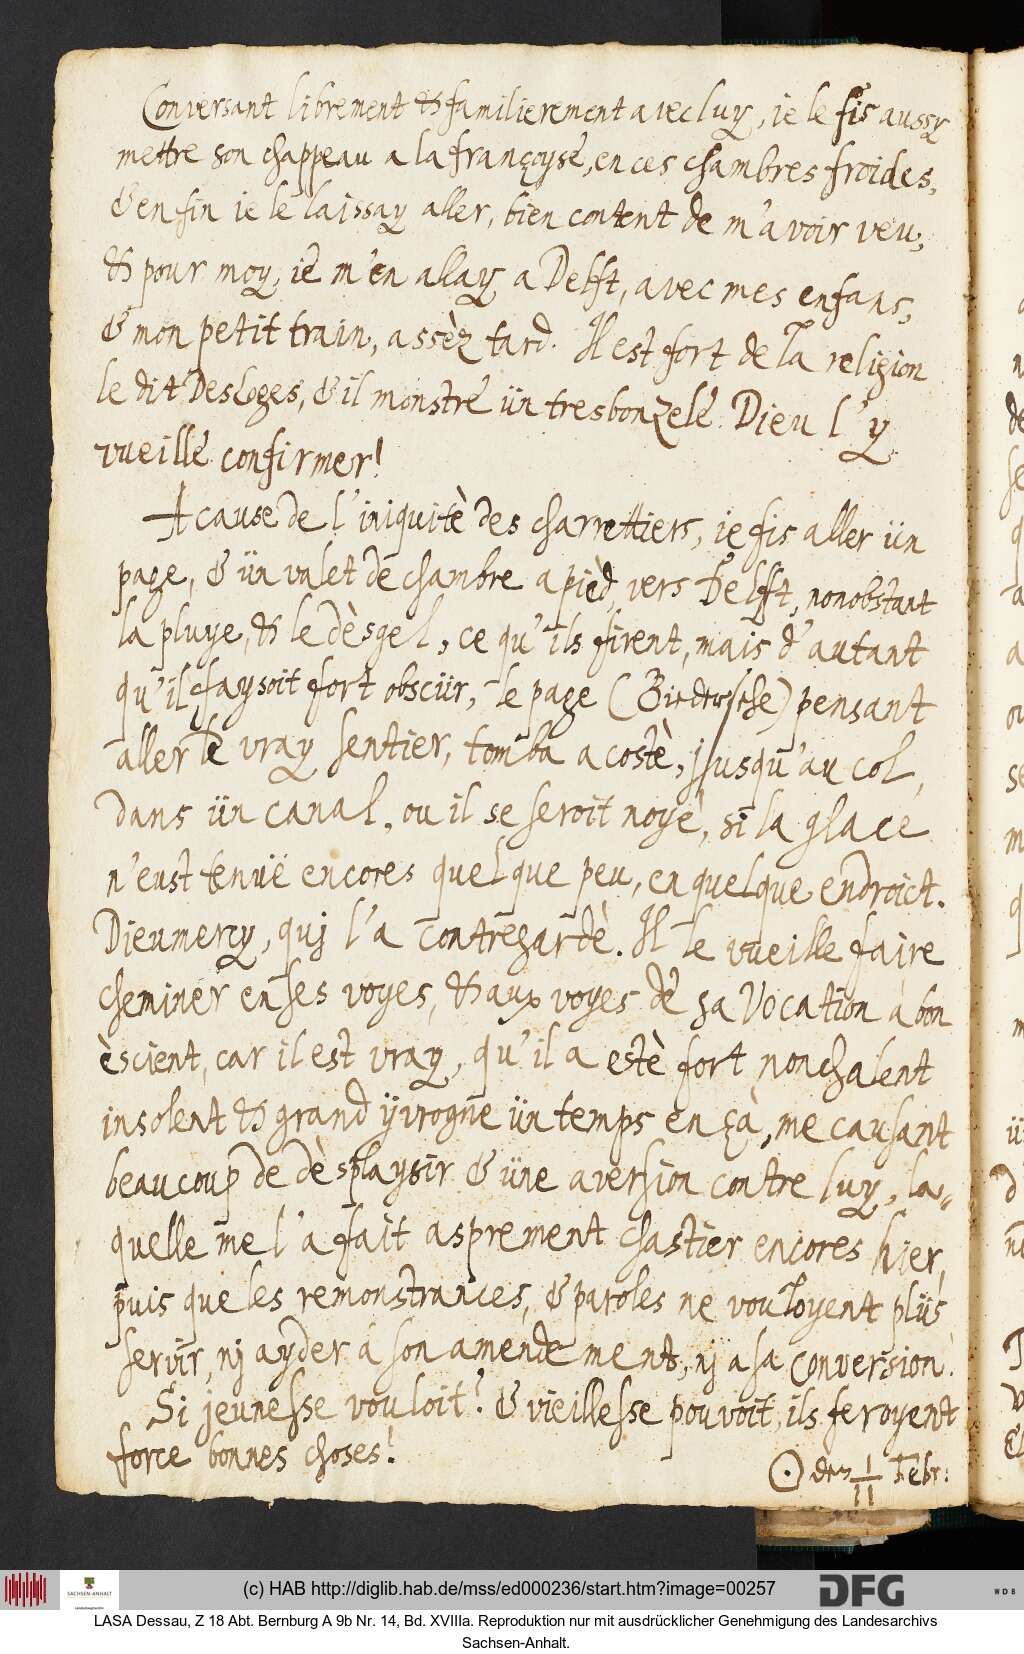 Conversant librement & familierement avec luy, ie le fis aussy
mettre son chappeau a la françoyse, en ces chambres froides,
& en fin ie le laissay aller, bien content de m'avoir veu,
& pour moy, ie m'en allay a Delft, avec mes enfans,
& mon petit train, assèz tard. Il est fort de la religion
le dit Desloges, & il monstre ün tresbon zele. Dieu l'y
vueille confirmer!
A cause de l'iniquitè des charrettiers, ie fis aller ün
page, & ün valet de chambre a pièd, vers Delft, nonobstant
la pluye, & le dèsgel, ce qu'ils firent, mais d'autant
qu'il faysoit fort obscür, le page (Biedersehe) pensant
aller le vray sentier, tomba a costè, jusqu'au col,
dans ün canal, ou il se seroit noyè, si la glace
n'eust tenuë encores quelque peu, en quelque endroict.
Dieumercy, quj l'a contregardè. Il le vueille faire
cheminer en ses voyes, & aux voyes de sa Vocation a bon
èscient, car il est vray, qu'il a estè fort nonchalent
insolent & grand ÿvrogne ün temps en çà, me causant
beaucoup de dèsplaysir & üne aversion contre luy, la-
quelle me l'a fait asprement chastier encores hier,
puis que les remonstrances, & paroles ne vouloyent plüs
servir, nj ayder a son amendement, nj a sa conversion.
Si jeunesse vouloit? & vieillesse pouvoit, ils feroyent
force bonnes choses!
☉ den 1/11 Febr:
(c) HAB http://diglib.hab.de/mss/ed000236/start.htm?image=00257
SACHSEN-ANHALT
DFG
WDB
LASA Dessau, Z 18 Abt. Bernburg A 9b Nr. 14, Bd. XVIIIa. Reproduktion nur mit ausdrücklicher Genehmigung des Landesarchivs
Sachsen-Anhalt.